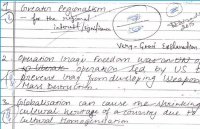 1. Greater Regionalism
- for the regional
interest/significance
Very-Good Explanation
2. Operation Iraqi Freedom was an
operation led by US to
prevent Iraq from developing Weapons
Mass Destruction.
3. Globalisation can cause the shrinking
cultural heritage of a country due to
Cultural Homogenisation